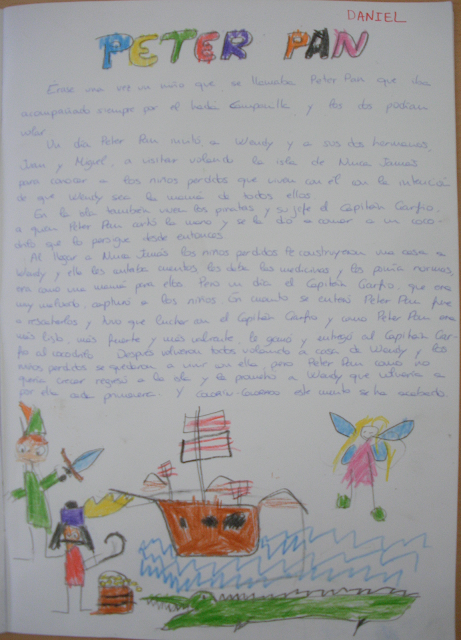 DANIEL
PETER PAN
Érase una vez un niño que se llamaba Peter Pan que iba
acompañado siempre por el hada Campanilla y los dos podían
volar.
Un día Peter Pan invitó a Wendy y a sus dos hermanos,
Juan y Miguel, a visitar volando la isla de Nunca Jamás
para conocer a los niños perdidos que vivían con él con la intención
de que Wendy sea la mamá de todos ellos.
En la isla también viven los piratas y su jefe el Capitán Garfio,
a quien Peter Pan cortó la mano y se la dió a comer a un coco-
drilo que lo persigue desde entonces.
Al llegar a Nunca Jamás los niños perdidos le construyeron una casa a
Wendy y ella les contaba cuentos, les daba las medicinas y les ponía normas,
era como una mamá para ellos. Pero un día el Capitán Garfio, que era
muy malvado, capturó a los niños. En cuanto se enteró Peter Pan fue
a rescatarlos y tuvo que luchar con el Capitán Garfio y como Peter Pan era
más listo, más fuerte y más valiente, le ganó y entregó al Capitán Gar-
fio al cocodrilo. Después volvieron todos volando a casa de Wendy y los
niños perdidos se quedaron a vivir con ella, pero Peter Pan como no
quería crecer regresó a la isla y le prometió a Wendy que volvería a
por ella cada primavera. Y colorín-colorado este cuento se ha acabado.